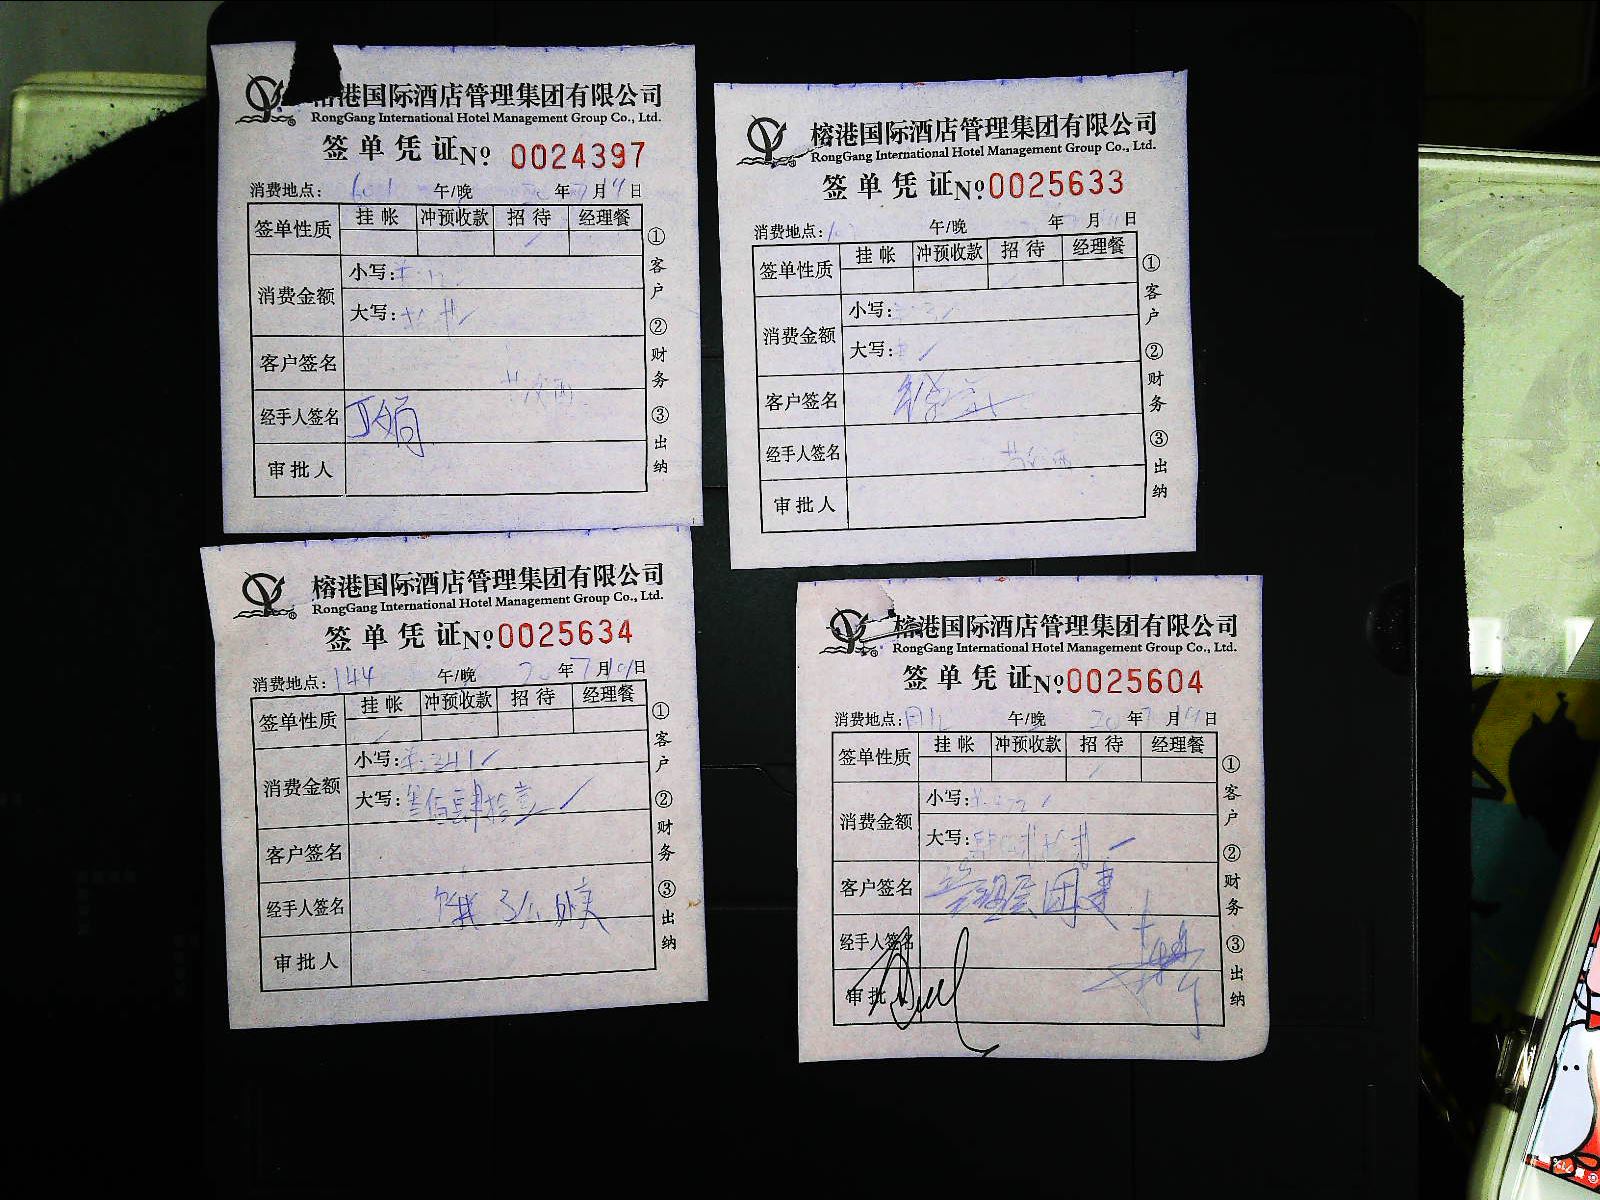 榕港国际酒店管理集团有限公司
RongGang International Hotel Management Group Co., Ltd.
签单凭证 No 0024397
消费地点: 601 午/晚 年7月19日
签单性质 挂帐 冲预收款 招待 经理餐
消费金额 小写:
大写:
客户签名
经手人签名
审批人
①客户 ②财务 ③出纳
榕港国际酒店管理集团有限公司
RongGang International Hotel Management Group Co., Ltd.
签单凭证 No 0025633
消费地点: 午/晚 年 月 日
签单性质 挂帐 冲预收款 招待 经理餐
消费金额 小写:
大写:
客户签名
经手人签名
审批人
①客户 ②财务 ③出纳
榕港国际酒店管理集团有限公司
RongGang International Hotel Management Group Co., Ltd.
签单凭证 No 0025634
消费地点: 144 午/晚 20年7月19日
签单性质 挂帐 冲预收款 招待 经理餐
消费金额 小写: 341
大写: 叁佰肆拾壹
客户签名
经手人签名
审批人
①客户 ②财务 ③出纳
榕港国际酒店管理集团有限公司
RongGang International Hotel Management Group Co., Ltd.
签单凭证 No 0025604
消费地点: 午/晚 20年7月19日
签单性质 挂帐 冲预收款 招待 经理餐
消费金额 小写:
大写:
客户签名 管理层团建
经手人签名
审批
①客户 ②财务 ③出纳